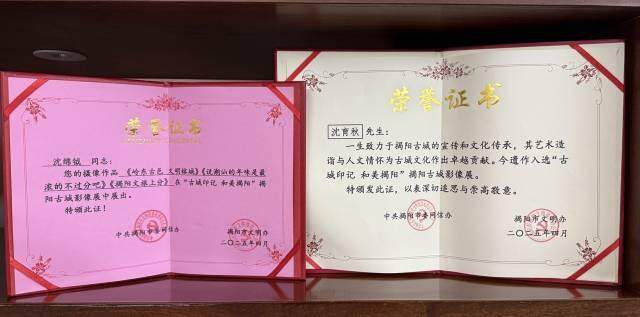 荣誉证书
沈绵钺 同志：
您的摄像作品 《岭东古邑 文明榕城》《说潮汕的年味是最
浓的不过分吧》《揭阳文旅上分》在“古城印记 和美揭阳”揭
阳古城影像展中展出。
特颁此证！
中共揭阳市委网信办 揭阳市文明办
二〇二五年四月
荣誉证书
沈育秋 先生：
一生致力于揭阳古城的宣传和文化传承，其艺术造
诣与人文情怀为古城文化作出卓越贡献。今遗作入选“古
城印记 和美揭阳”揭阳古城影像展。
特颁发此证，以表深切追思与崇高敬意。
中共揭阳市委网信办 揭阳市文明办
二〇二五年四月